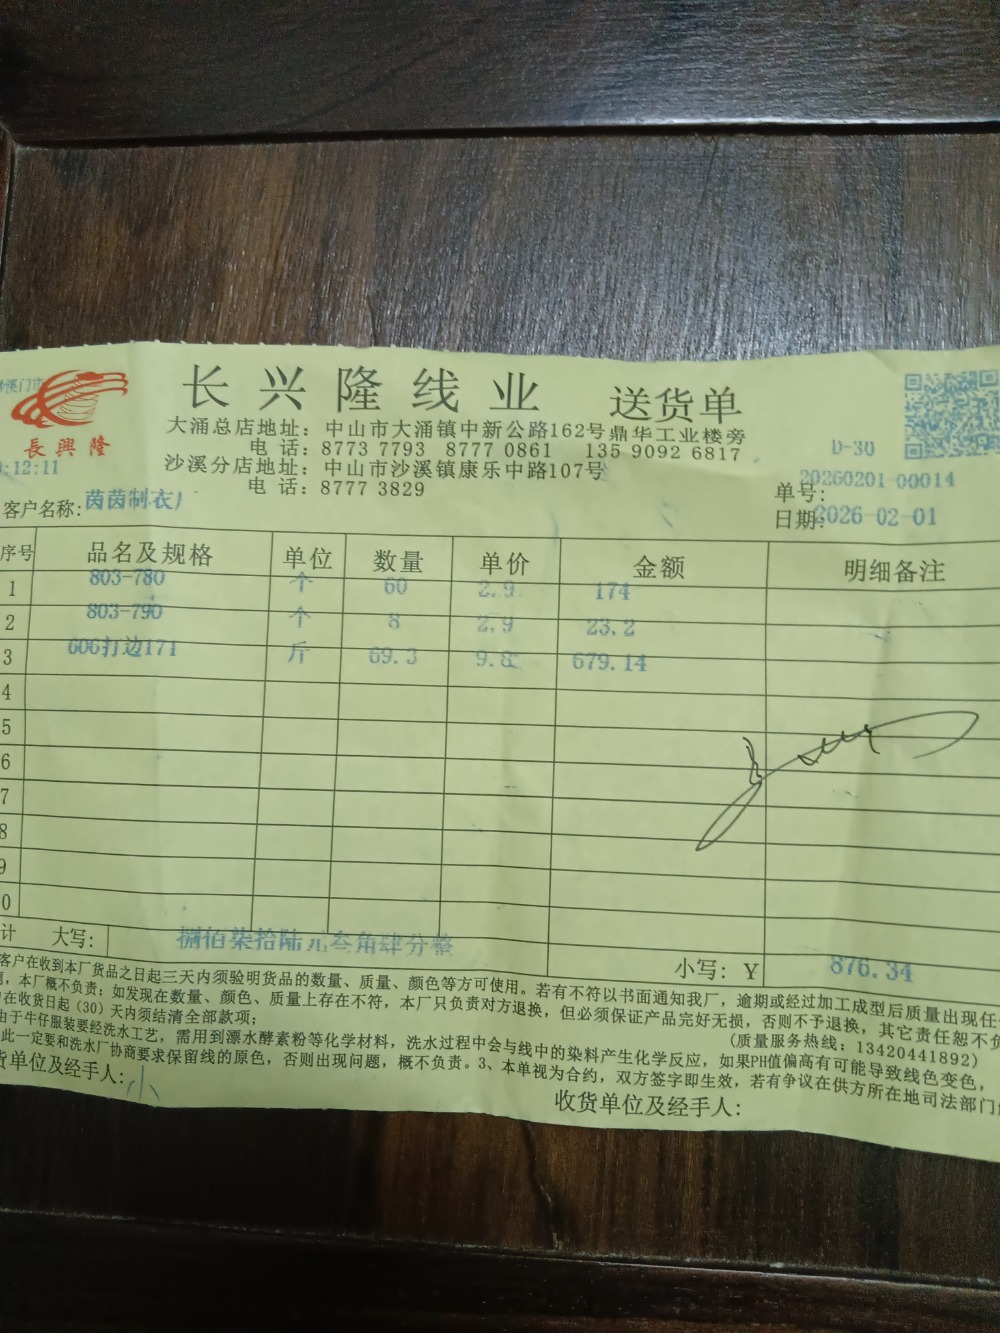 长兴隆线业 送货单
長興隆
大涌总店地址：中山市大涌镇中新公路162号鼎华工业楼旁
电 话：8773 7793 8777 0861 135 9092 6817
沙溪分店地址：中山市沙溪镇康乐中路107号
电 话：8777 3829
D-30
:12:11
客户名称：茵茵制衣厂
单号：20260201-00014
日期：2026-02-01
序号 品名及规格 单位 数量 单价 金额 明细备注
1 803-780 个 60 2.9 174
2 803-790 个 8 2.9 23.2
3 606打边171 斤 69.3 9.8 679.14
4
5
6
7
8
9
0
计 大写：捌佰柒拾陆元叁角肆分整 小写：Y 876.34
客户在收到本厂货品之日起三天内须验明货品的数量、质量、颜色等方可使用。若有不符以书面通知我厂，逾期或经过加工成型后质量出现任
，本厂概不负责；如发现在数量、颜色、质量上存在不符，本厂只负责对方退换，但必须保证产品完好无损，否则不予退换，其它责任恕不负
在收货日起（30）天内须结清全部款项； （质量服务热线：13420441892）
由于牛仔服装要经洗水工艺，需用到漂水酵素粉等化学材料，洗水过程中会与线中的染料产生化学反应，如果PH值偏高有可能导致线色变色，
此一定要和洗水厂协商要求保留线的原色，否则出现问题，概不负责。3、本单视为合约，双方签字即生效，若有争议在供方所在地司法部门
货单位及经手人：小
收货单位及经手人：